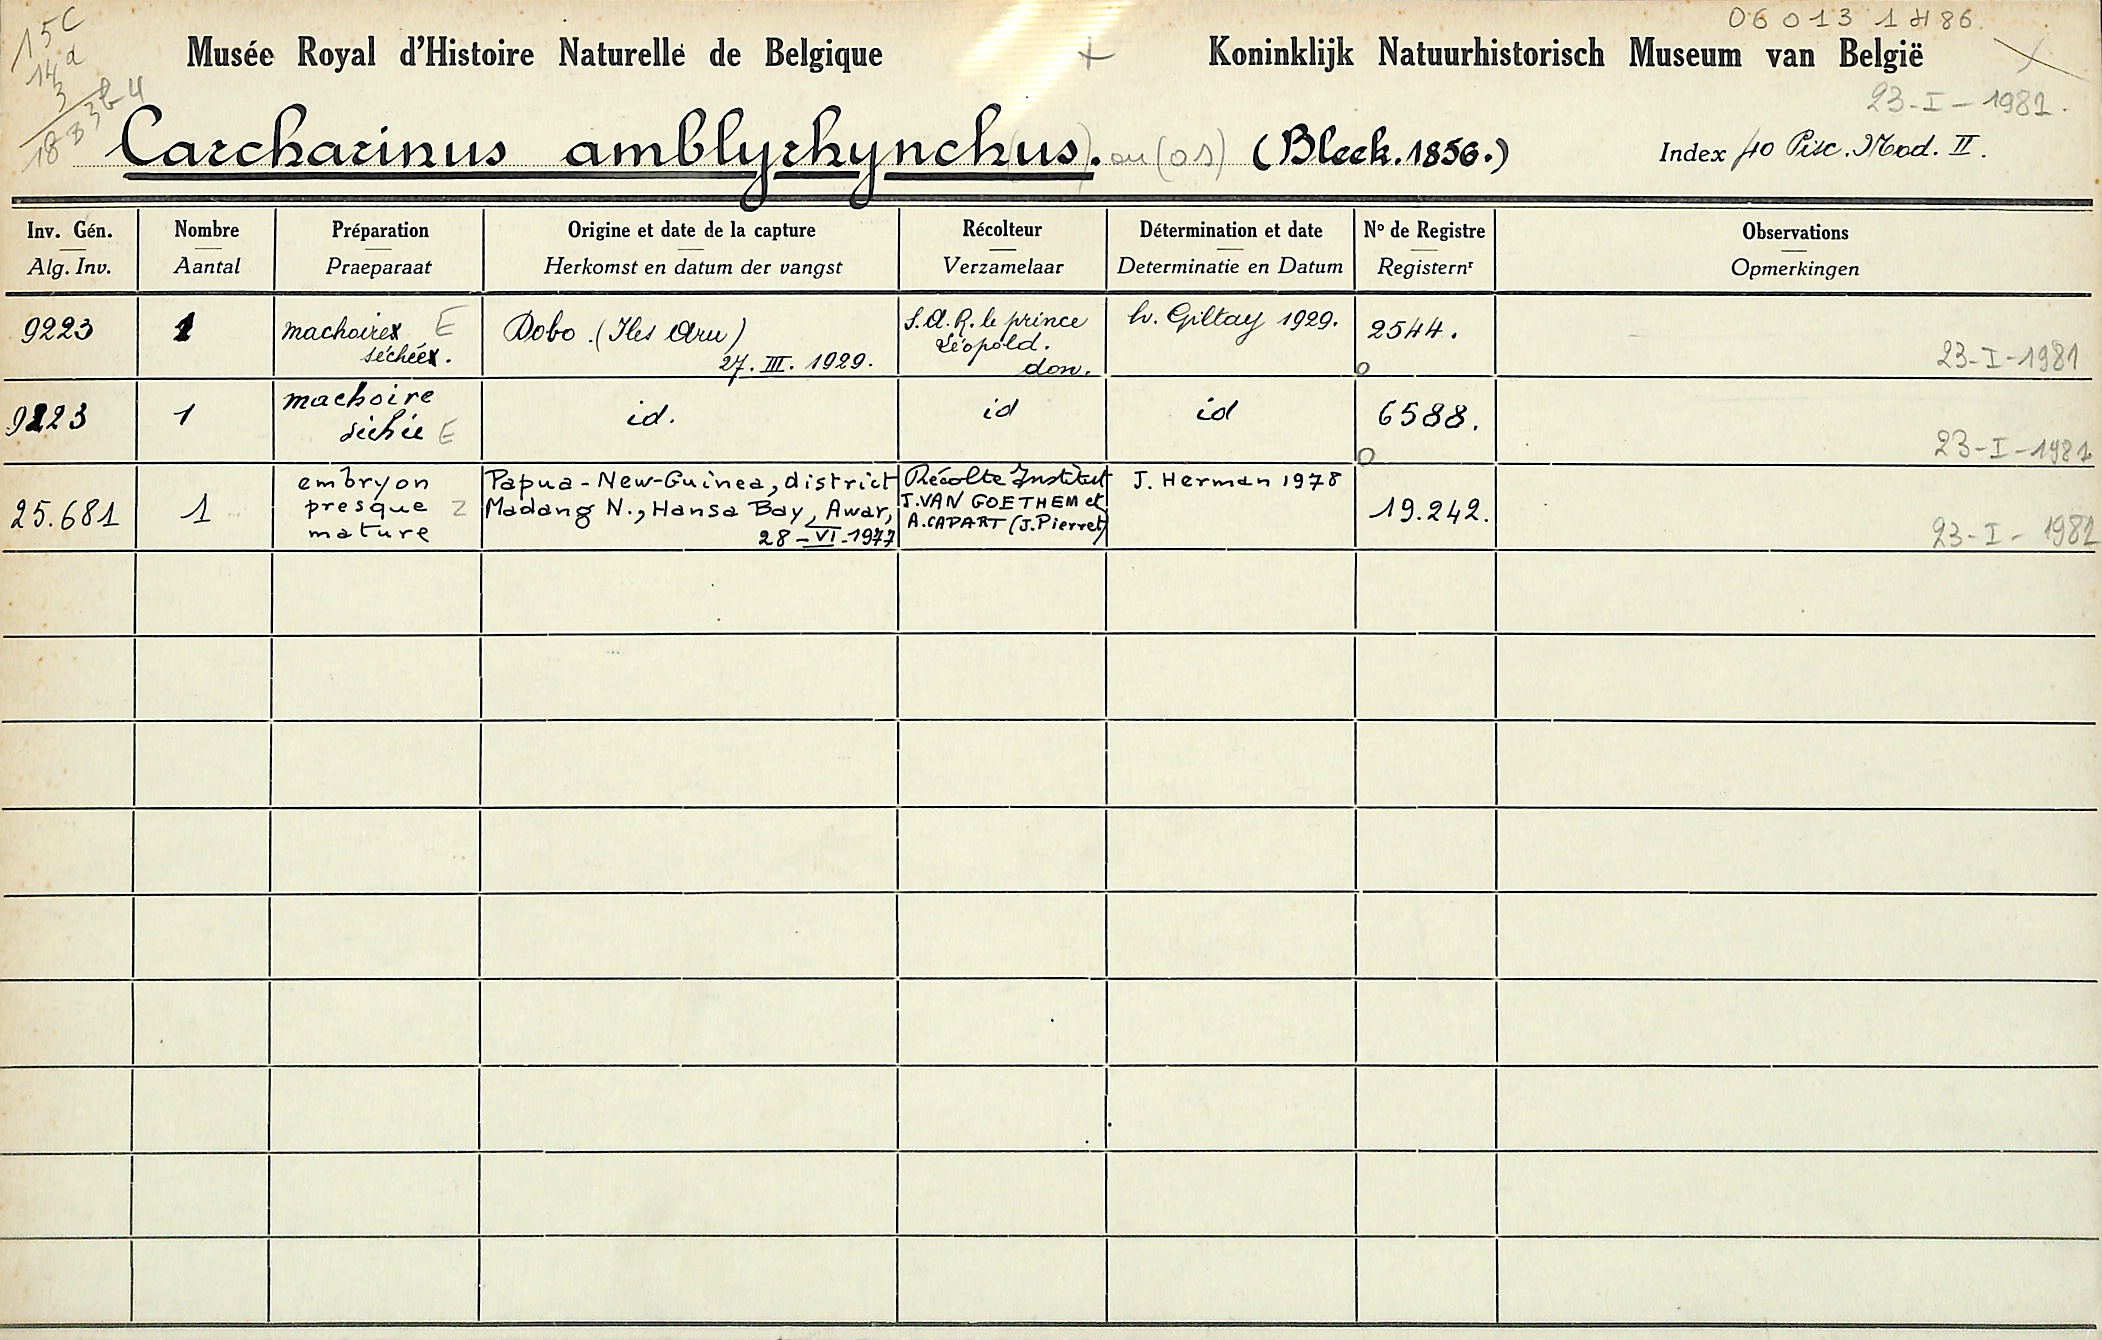 15C
14a
3
3b-4
18B
06013 1486
Musée Royal d'Histoire Naturelle de Belgique + Koninklijk Natuurhistorisch Museum van België
23-I-1981.
Carcharinus amblyrhynchus. ou (os) (Bleek. 1856.) Index 40 Pisc. Mod. II.
Inv. Gén. Nombre Préparation Origine et date de la capture Récolteur Détermination et date No de Registre Observations
Alg. Inv. Aantal Praeparaat Herkomst en datum der vangst Verzamelaar Determinatie en Datum Registernr Opmerkingen
9223 1 machoires E Dobo. (Iles Aru) S.A.R. le prince L. Giltay 1929. 2544.
séchées. 27. III. 1929. Léopold. 23-I-1981
don.
9223 1 machoire id. id id 6588.
séchée E 23-I-1981
25.681 1 embryon Papua-New-Guinea, district Récolte Institut J. Herman 1978 19.242.
presque Z Madang N., Hansa Bay, Awar, J. VAN GOETHEM et
mature 28-VI-1977 A. CAPART (J. Pierret) 23-I-1981